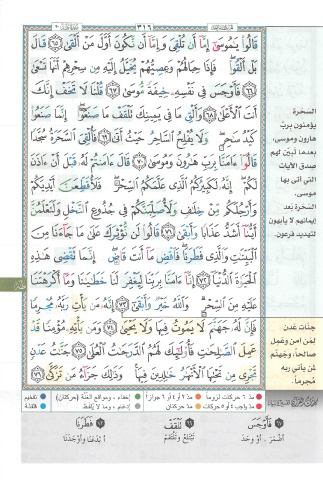 ٣١٦
قَالُوا۟ يَٰمُوسَىٰٓ إِمَّآ أَن تُلْقِىَ وَإِمَّآ أَن نَّكُونَ أَوَّلَ مَنْ أَلْقَىٰ ٦٥ قَالَ
بَلْ أَلْقُوا۟ ۖ فَإِذَا حِبَالُهُمْ وَعِصِيُّهُمْ يُخَيَّلُ إِلَيْهِ مِن سِحْرِهِمْ أَنَّهَا تَسْعَىٰ
٦٦ فَأَوْجَسَ فِى نَفْسِهِۦ خِيفَةً مُّوسَىٰ ٦٧ قُلْنَا لَا تَخَفْ إِنَّكَ
أَنتَ ٱلْأَعْلَىٰ ٦٨ وَأَلْقِ مَا فِى يَمِينِكَ تَلْقَفْ مَا صَنَعُوٓا۟ ۖ إِنَّمَا صَنَعُوا۟
كَيْدُ سَٰحِرٍ ۖ وَلَا يُفْلِحُ ٱلسَّاحِرُ حَيْثُ أَتَىٰ ٦٩ فَأُلْقِىَ ٱلسَّحَرَةُ سُجَّدًا
قَالُوٓا۟ ءَامَنَّا بِرَبِّ هَٰرُونَ وَمُوسَىٰ ٧٠ قَالَ ءَامَنتُمْ لَهُۥ قَبْلَ أَنْ ءَاذَنَ
لَكُمْ ۖ إِنَّهُۥ لَكَبِيرُكُمُ ٱلَّذِى عَلَّمَكُمُ ٱلسِّحْرَ ۖ فَلَأُقَطِّعَنَّ أَيْدِيَكُمْ
وَأَرْجُلَكُم مِّنْ خِلَٰفٍ وَلَأُصَلِّبَنَّكُمْ فِى جُذُوعِ ٱلنَّخْلِ وَلَتَعْلَمُنَّ
أَيُّنَآ أَشَدُّ عَذَابًا وَأَبْقَىٰ ٧١ قَالُوا۟ لَن نُّؤْثِرَكَ عَلَىٰ مَا جَآءَنَا مِنَ
ٱلْبَيِّنَٰتِ وَٱلَّذِى فَطَرَنَا ۖ فَٱقْضِ مَآ أَنتَ قَاضٍ ۖ إِنَّمَا تَقْضِى هَٰذِهِ
ٱلْحَيَوٰةَ ٱلدُّنْيَآ ٧٢ إِنَّآ ءَامَنَّا بِرَبِّنَا لِيَغْفِرَ لَنَا خَطَٰيَٰنَا وَمَآ أَكْرَهْتَنَا
عَلَيْهِ مِنَ ٱلسِّحْرِ ۗ وَٱللَّهُ خَيْرٌ وَأَبْقَىٰٓ ٧٣ إِنَّهُۥ مَن يَأْتِ رَبَّهُۥ مُجْرِمًا
فَإِنَّ لَهُۥ جَهَنَّمَ لَا يَمُوتُ فِيهَا وَلَا يَحْيَىٰ ٧٤ وَمَن يَأْتِهِۦ مُؤْمِنًا قَدْ
عَمِلَ ٱلصَّٰلِحَٰتِ فَأُو۟لَٰٓئِكَ لَهُمُ ٱلدَّرَجَٰتُ ٱلْعُلَىٰ ٧٥ جَنَّٰتُ عَدْنٍ
تَجْرِى مِن تَحْتِهَا ٱلْأَنْهَٰرُ خَٰلِدِينَ فِيهَا ۚ وَذَٰلِكَ جَزَآءُ مَن تَزَكَّىٰ ٧٦
السحرة
يؤمنون برب
هارون وموسى،
بعدما تبين لهم
صدق الآيات
التي أتى بها
موسى.
السحرة بعد
إيمانهم لا يأبهون
لتهديد فرعون.
جنات عدن
لمن آمن وعمل
صالحاً، وجهنم
لمن يأتي ربه
مجرماً.
مد ٦ حركات لزوماً
مد ٢ أو ٤ أو ٦ جوازاً
إخفاء، ومواقع الغنة (حركتان)
تفخيم
مد واجب ٤ أو ٥ حركات
مد حركتان
إدغام، وما لا يلفظ
قلقلة
٦٧ فَأَوْجَسَ
أضمر، أو وجد
٦٩ تَلْقَفْ
تبتلع وتلتقم
٧٢ فَطَرَنَا
أبدعنا وأوجدنا